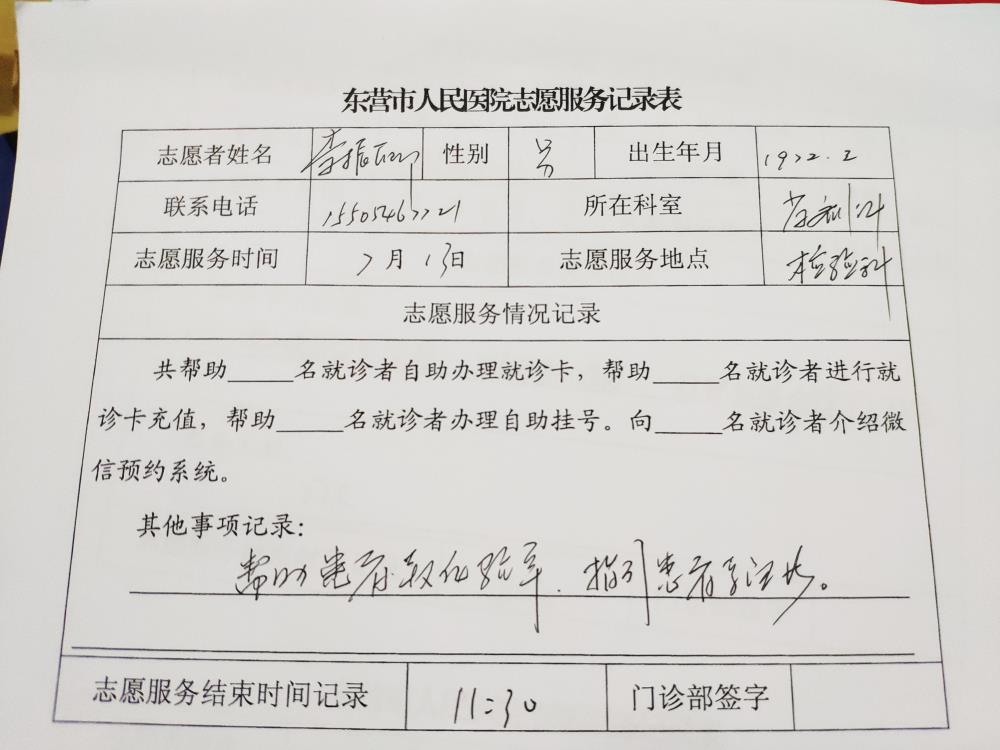 东营市人民医院志愿服务记录表
志愿者姓名 李振 性别 男 出生年月 1972.2
联系电话 15505467721 所在科室
志愿服务时间 7月13日 志愿服务地点 检验科
志愿服务情况记录
共帮助_____名就诊者自助办理就诊卡，帮助_____名就诊者进行就
诊卡充值，帮助_____名就诊者办理自助挂号。向_____名就诊者介绍微
信预约系统。
其他事项记录：
帮助患者取化验单、指引患者
志愿服务结束时间记录 11:30 门诊部签字